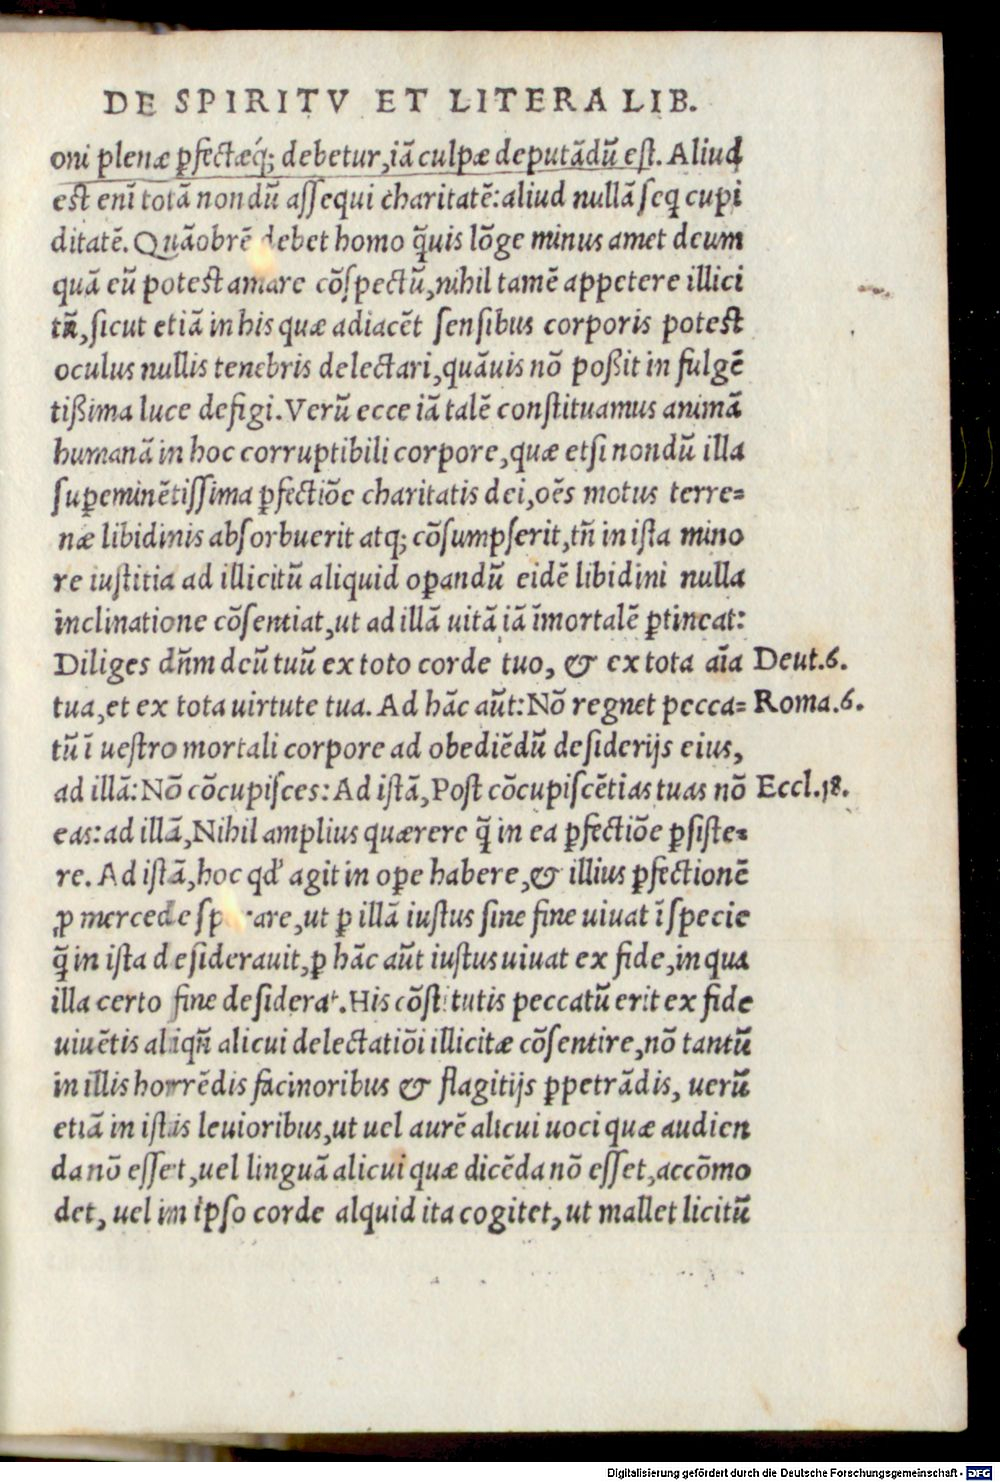 DE SPIRITV ET LITERA LIB.
oni plenæ ꝑfectæq́ꝫ debetur,iā culpæ deputādū est. Aliud
est enī totā nondū assequi charitatē:aliud nullā seq̨ cupi
ditatē. Quāobrē debet homo q̄uis lōge minus amet deum
quā eū potest amare cōspectū,nihil tamē appetere illici
tū,sicut etiā in his quæ adiacēt sensibus corporis potest
oculus nullis tenebris delectari,quāuis nō poßit in fulgē
tißima luce defigi.Verū ecce iā talē constituamus animā
humanā in hoc corruptibili corpore,quæ etsi nondū illa
suꝑeminētissima ꝑfectiōe charitatis dei,oēs motus terre=
næ libidinis absorbuerit atqꝫ cōsumpserit,tñ in ista mino
re iustitia ad illicitū aliquid oꝑandū eidē libidini nulla
inclinatione cōsentiat,ut ad illā uitā iā īmortalē ꝑtineat:
Diliges dñm deū tuū ex toto corde tuo, & ex tota aīa Deut.6.
tua,et ex tota uirtute tua. Ad hāc aūt:Nō regnet pecca= Roma.6.
tū ī uestro mortali corpore ad obediēdū desiderijs eius,
ad illā:Nō cōcupisces:Ad istā,Post cōcupiscētias tuas nō Eccl.18.
eas:ad illā,Nihil amplius quærere q̄ in ea ꝑfectiōe ꝑsiste=
re. Ad istā,hoc qd' agit in oꝑe habere,& illius ꝑfectionē
ꝓ mercede sperare,ut ꝑ illā iustus sine fine uiuat ī specie
q̄ in ista desiderauit,ꝑ hāc aūt iustus uiuat ex fide,in qua
illa certo fine desiderat.His cōstitutis peccatū erit ex fide
uiuētis aliqñ alicui delectatiōi illicitæ cōsentire,nō tantū
in illis horrēdis facinoribus & flagitijs ꝑpetrādis, uerū
etiā in istis leuioribus,ut uel aurē alicui uoci quæ audien
da nō esset,uel linguā alicui quæ dicēda nō esset,accōmo
det, uel im ipso corde alquid ita cogitet,ut mallet licitū
Digitalisierung gefördert durch die Deutsche Forschungsgemeinschaft - DFG